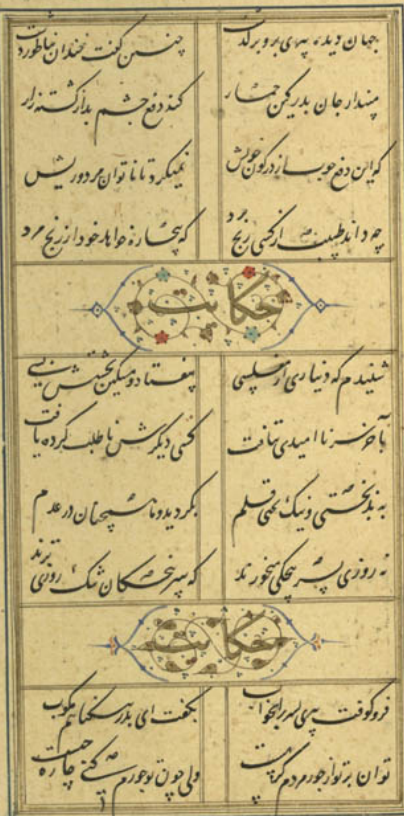 جهان دیده پیری بر و برگذشت چنین گفت خندان بناطور دشت
مپندار جان پدر کین حمار کند دفع چشم بد از کشته زار
که این دفع چوب از در کون خویش نمیکرد تا ناتوان مرد و ریش
چه داند طبیب از کسی رنج برد که بیچاره خواهد خود از رنج مرد
حکایت
شنیدم که دیناری از مفلسی بیفتاد و مسکین بجستش بسی
بآخر سر ناامیدی بتافت کسی دیگرش ناطلب کرده یافت
به بدبختی و نیک بختی قلم بگردید و ما همچنان در عدم
نه روزی بسر پنجگی میخورند که سرپنجگان تنگ روزی ترند
حکایت
فرو کوفت پیری پسر را بچوب بگفت ای پدر بیگناهم مکوب
توان بر تو از جور مردم گریست ولی چون تو جورم کنی چاره چیست